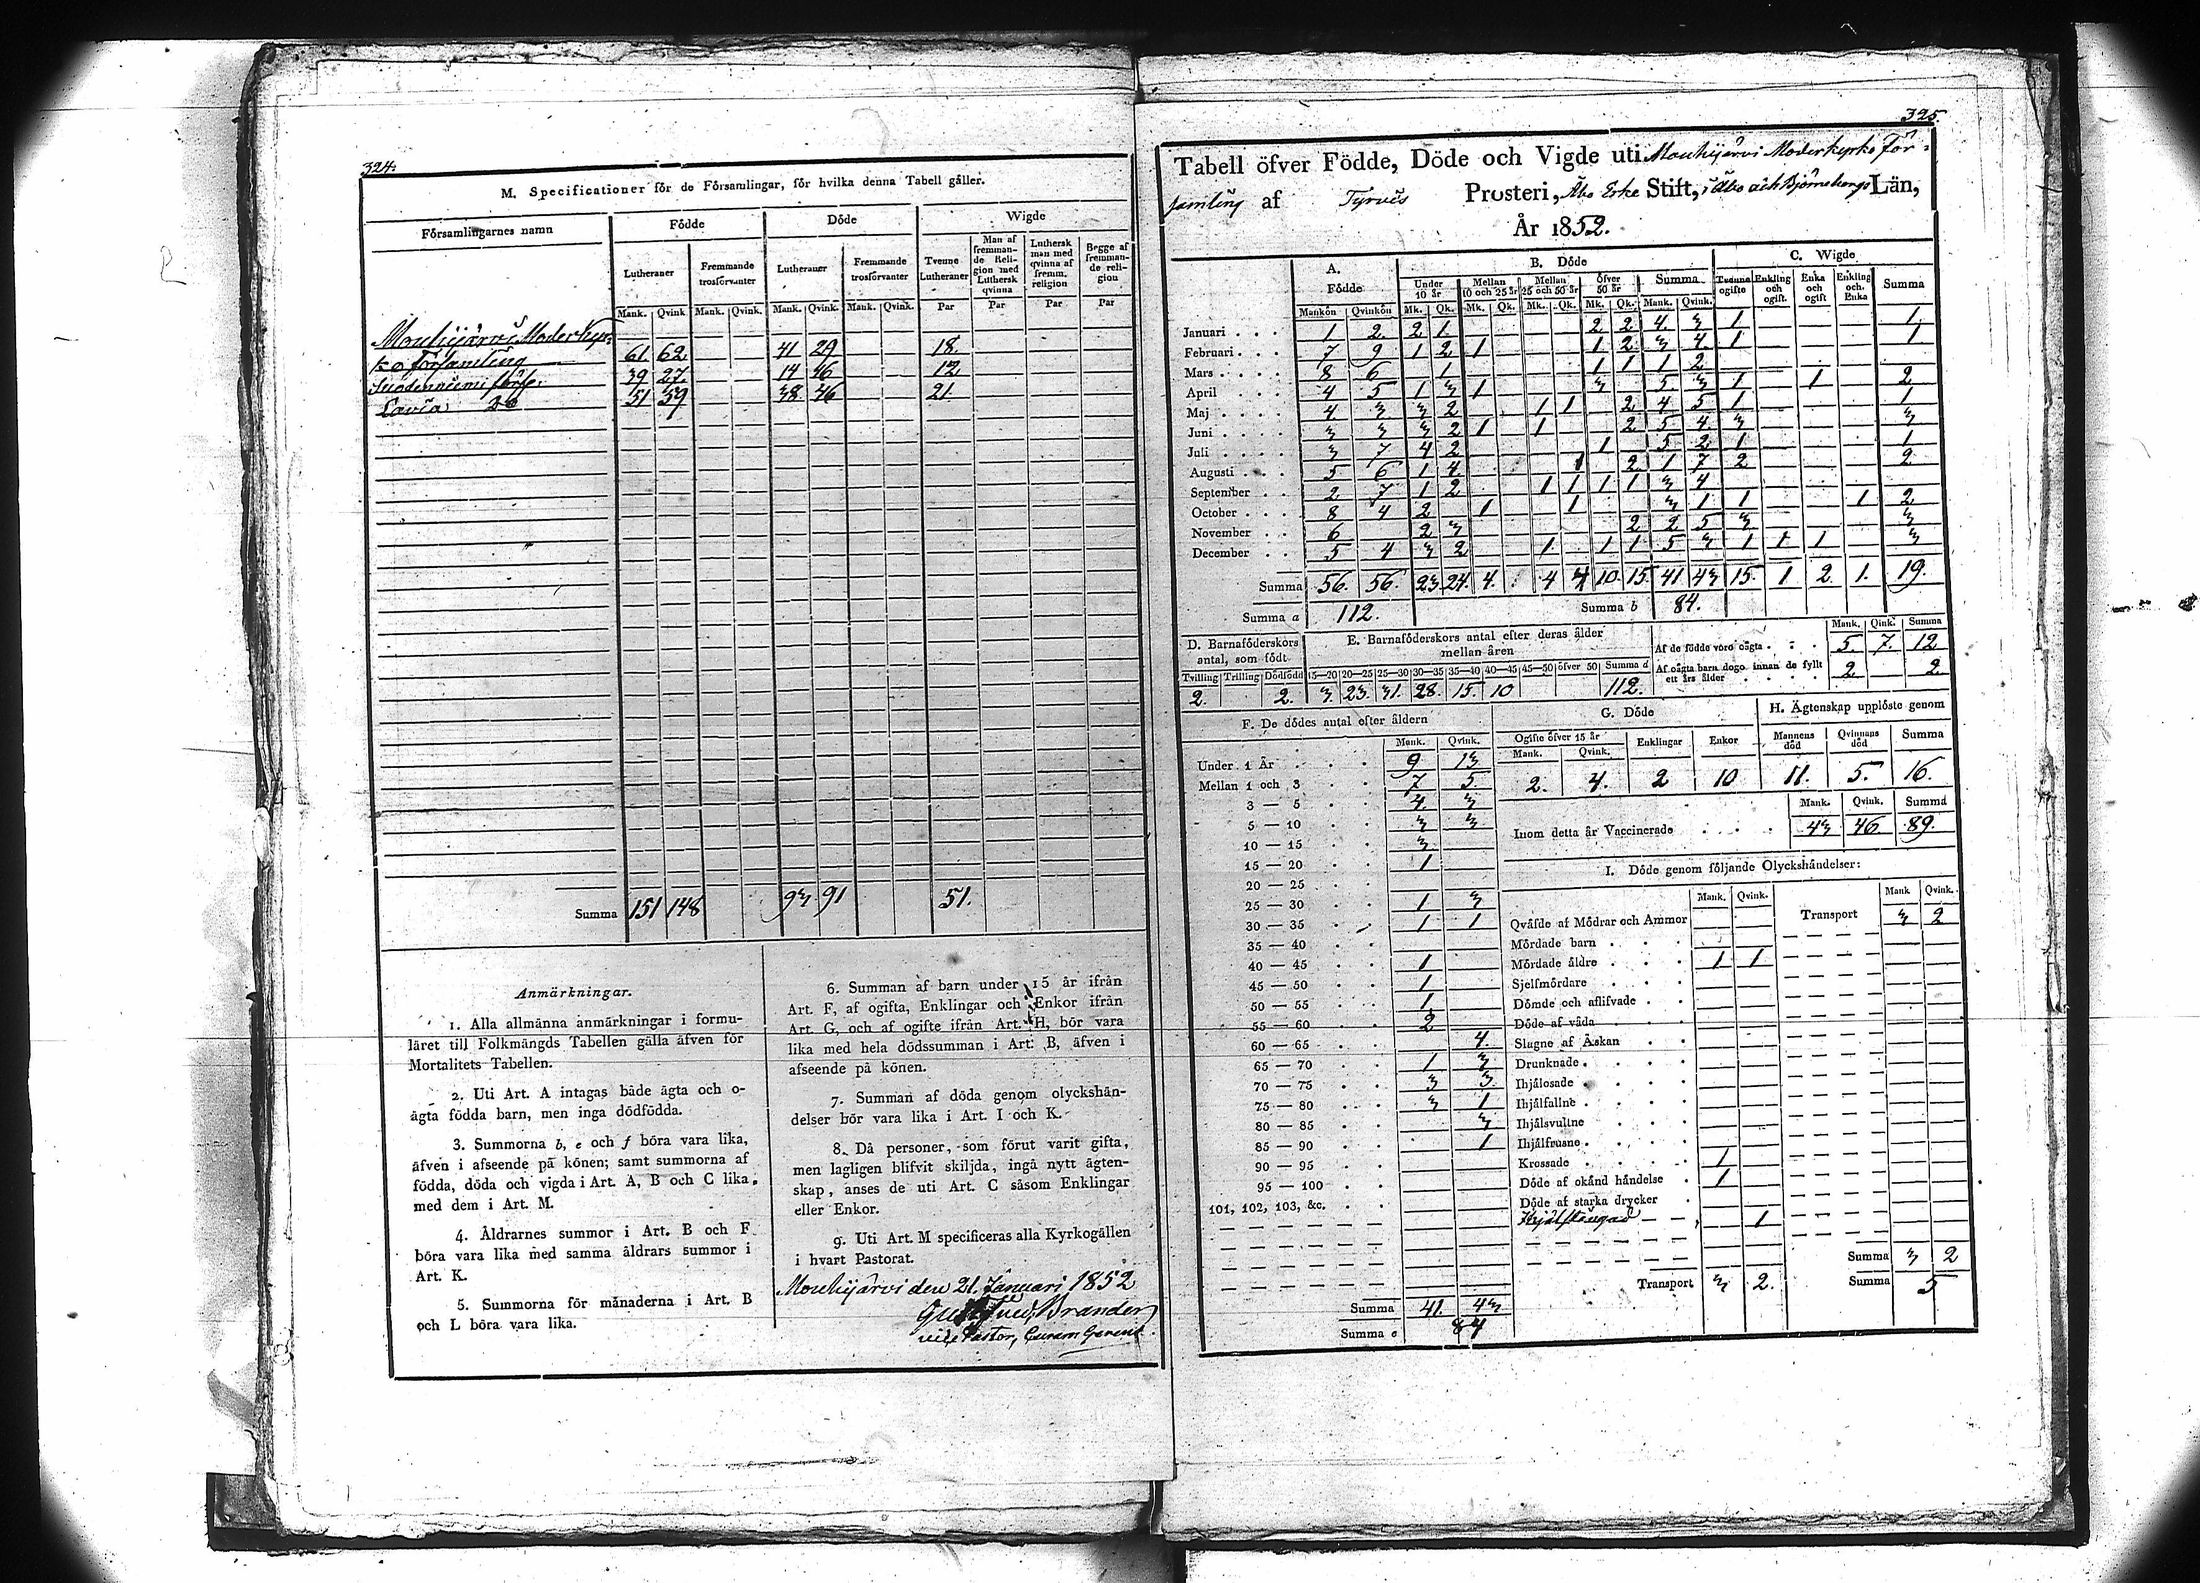 324.
M. Specificationer för de Församlingar, för hvilka denna Tabell gäller.
Församlingarnes namn | Födde | Döde | Wigde
Lutheraner | Fremmande trosförvanter | Lutheraner | Fremmande trosförvanter | Tvenne Lutheraner | Man af fremmande Religion med Luthersk qvinna | Luthersk man med qvinna af fremm. religion | Begge af fremmande religion
Mank. Qvink Mank. Qvink. Mank. Qvink. Mank. Qvink. Par Par Par Par
Mouhijärvi Moderkyr-
ko församling 61 62 41 29 18.
Suodenniemi förs: 39 27. 14 16 12
Lavia Do 51 59 38 46 21.
Summa 151 148 93 91 51.
Anmärkningar.
1. Alla allmänna anmärkningar i formu-
läret till Folkmängds Tabellen gälla äfven för
Mortalitets Tabellen.
2. Uti Art. A intagas både ägta och o-
ägta födda barn, men inga dödfödda.
3. Summorna b, e och f böra vara lika,
äfven i afseende på könen; samt summorna af
födda, döda och vigda i Art. A, B och C lika
med dem i Art. M.
4. Åldrarnes summor i Art. B och F
böra vara lika med samma åldrars summor i
Art. K.
5. Summorna för månaderna i Art. B
och L böra vara lika.
6. Summan af barn under 15 år ifrån
Art. F, af ogifta, Enklingar och Enkor ifrån
Art. G, och af ogifte ifrån Art. H, bör vara
lika med hela dödssumman i Art: B, äfven i
afseende på könen.
7. Summan af döda genom olyckshän-
delser bör vara lika i Art. I och K.
8. Då personer, som förut varit gifta,
men lagligen blifvit skiljda, ingå nytt ägten-
skap, anses de uti Art. C såsom Enklingar
eller Enkor.
9. Uti Art. M specificeras alla Kyrkogällen
i hvart Pastorat.
Mouhijärvi den 21. Januari 1852
Brander
vice Pastor,
325.
Tabell öfver Födde, Döde och Vigde uti Mouhijärvi Moderkyrko för-
samling af Tyrvis Prosteri, Åbo Erke Stift, i Åbo och Björneborgs Län,
År 1852.
A. Födde | B. Döde | C. Wigde
Under 10 år | Mellan 10 och 25 år | Mellan 25 och 50 år | öfver 50 år | Summa | Tvenne ogifte | Enkling och ogift. | Enka och ogift | Enkling och Enka | Summa
Mankön Qvinkön Mk. Qk. Mk. Qk. Mk. Qk. Mk. Qk. Mank. Qvink.
Januari 1 2 2 1 2 2 4 3 1 1
Februari 7 9 1 2 1 1 2 3 4 1 1
Mars 8 6 1 1 1 1 2
April 4 5 1 3 1 3 5 3 1 1 2
Maj 4 3 3 2 1 1 2 4 5 1 1
Juni 3 3 3 2 1 1 2 5 4 3 3
Juli 3 7 4 2 1 5 2 1 1
Augusti 5 6 1 4 1 2 1 7 2 2
September 2 7 1 2 1 1 1 1 3 4
October 8 4 2 1 1 3 1 1 1 2
November 6 2 3 2 2 5 3 3
December 5 4 3 2 1 1 1 5 3 1 1 1 3
Summa 56. 56. 23 24 4. 4 4 10 15 41 43 15. 1 2 1. 19.
Summa a 112. Summa b 84.
D. Barnaföderskors antal, som födt
Tvilling Trilling Dödfödd
2. 2.
E. Barnaföderskors antal efter deras ålder mellan åren
15—20 20—25 25—30 30—35 35—40 40—45 45—50 öfver 50 Summa d
3 23. 31. 28 15. 10 112.
Mank. Qink. Summa
Af de födde voro oägta 5. 7. 12
Af oägta barn dogo innan de fyllt ett års ålder 2 2.
F. De dödes antal efter åldern
Mank. Qvink.
Under 1 År 9 13
Mellan 1 och 3 7 5
3 — 5 4 3
5 — 10 3 3
10 — 15 3
15 — 20 1
20 — 25
25 — 30 1 3
30 — 35 1 1
35 — 40
40 — 45 1
45 — 50 1
50 — 55 1
55 — 60 2
60 — 65 4.
65 — 70 1 3
70 — 75 3 3
75 — 80 3 1
80 — 85 3
85 — 90 1
90 — 95
95 — 100
101, 102, 103, &c.
Summa 41. 43
Summa e 84
G. Döde
Ogifte öfver 15 år Enklingar Enkor
Mank. Qvink.
2. 4. 2 10
H. Ägtenskap upplöste genom
Mannens död Qvinnans död Summa
11. 5. 16.
Mank. Qvink. Summa
Inom detta år Vaccinerade 43 46 89.
I. Döde genom följande Olyckshändelser:
Mank. Qvink. Mank Qvink.
Qväfde af Mödrar och Ammor Transport 3 2
Mördade barn
Mördade äldre 1 1
Sjelfmördare
Dömde och aflifvade
Döde af våda
Slagne af Åskan
Drunknade
Ihjälosade
Ihjälfallne
Ihjälsvultne
Ihjälfrusne
Krossade 1
Döde af okänd händelse 1
Döde af starka drycker
Ihjälstångad 1
Summa 3 2
Transport 3 2. Summa 5